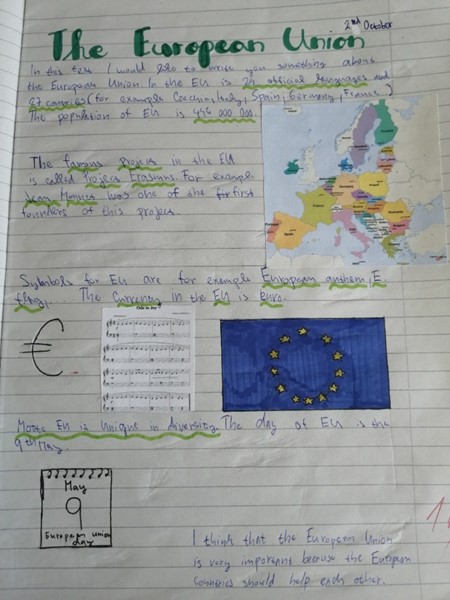 2nd October
The European Union
In this text I would like to write you something about
the European Union. In the EU is 24 official languages and
27 countries (for example Czech, Italy, Spain, Germany, France)
The population of EU is 446 000 000.
The famous Project in the EU
is called Project Erasmus. For example
Jean Monnet was one of the first
founders of this project.
Symbols for EU are for example European anthem, E
flag... The currency in the EU is euro.
€
Ode to Joy
Motte EU is Unique in diversity. The day of EU is the
9th May.
May
9
European union
day
I think that the European Union
is very important because the European
Countries should help each other.